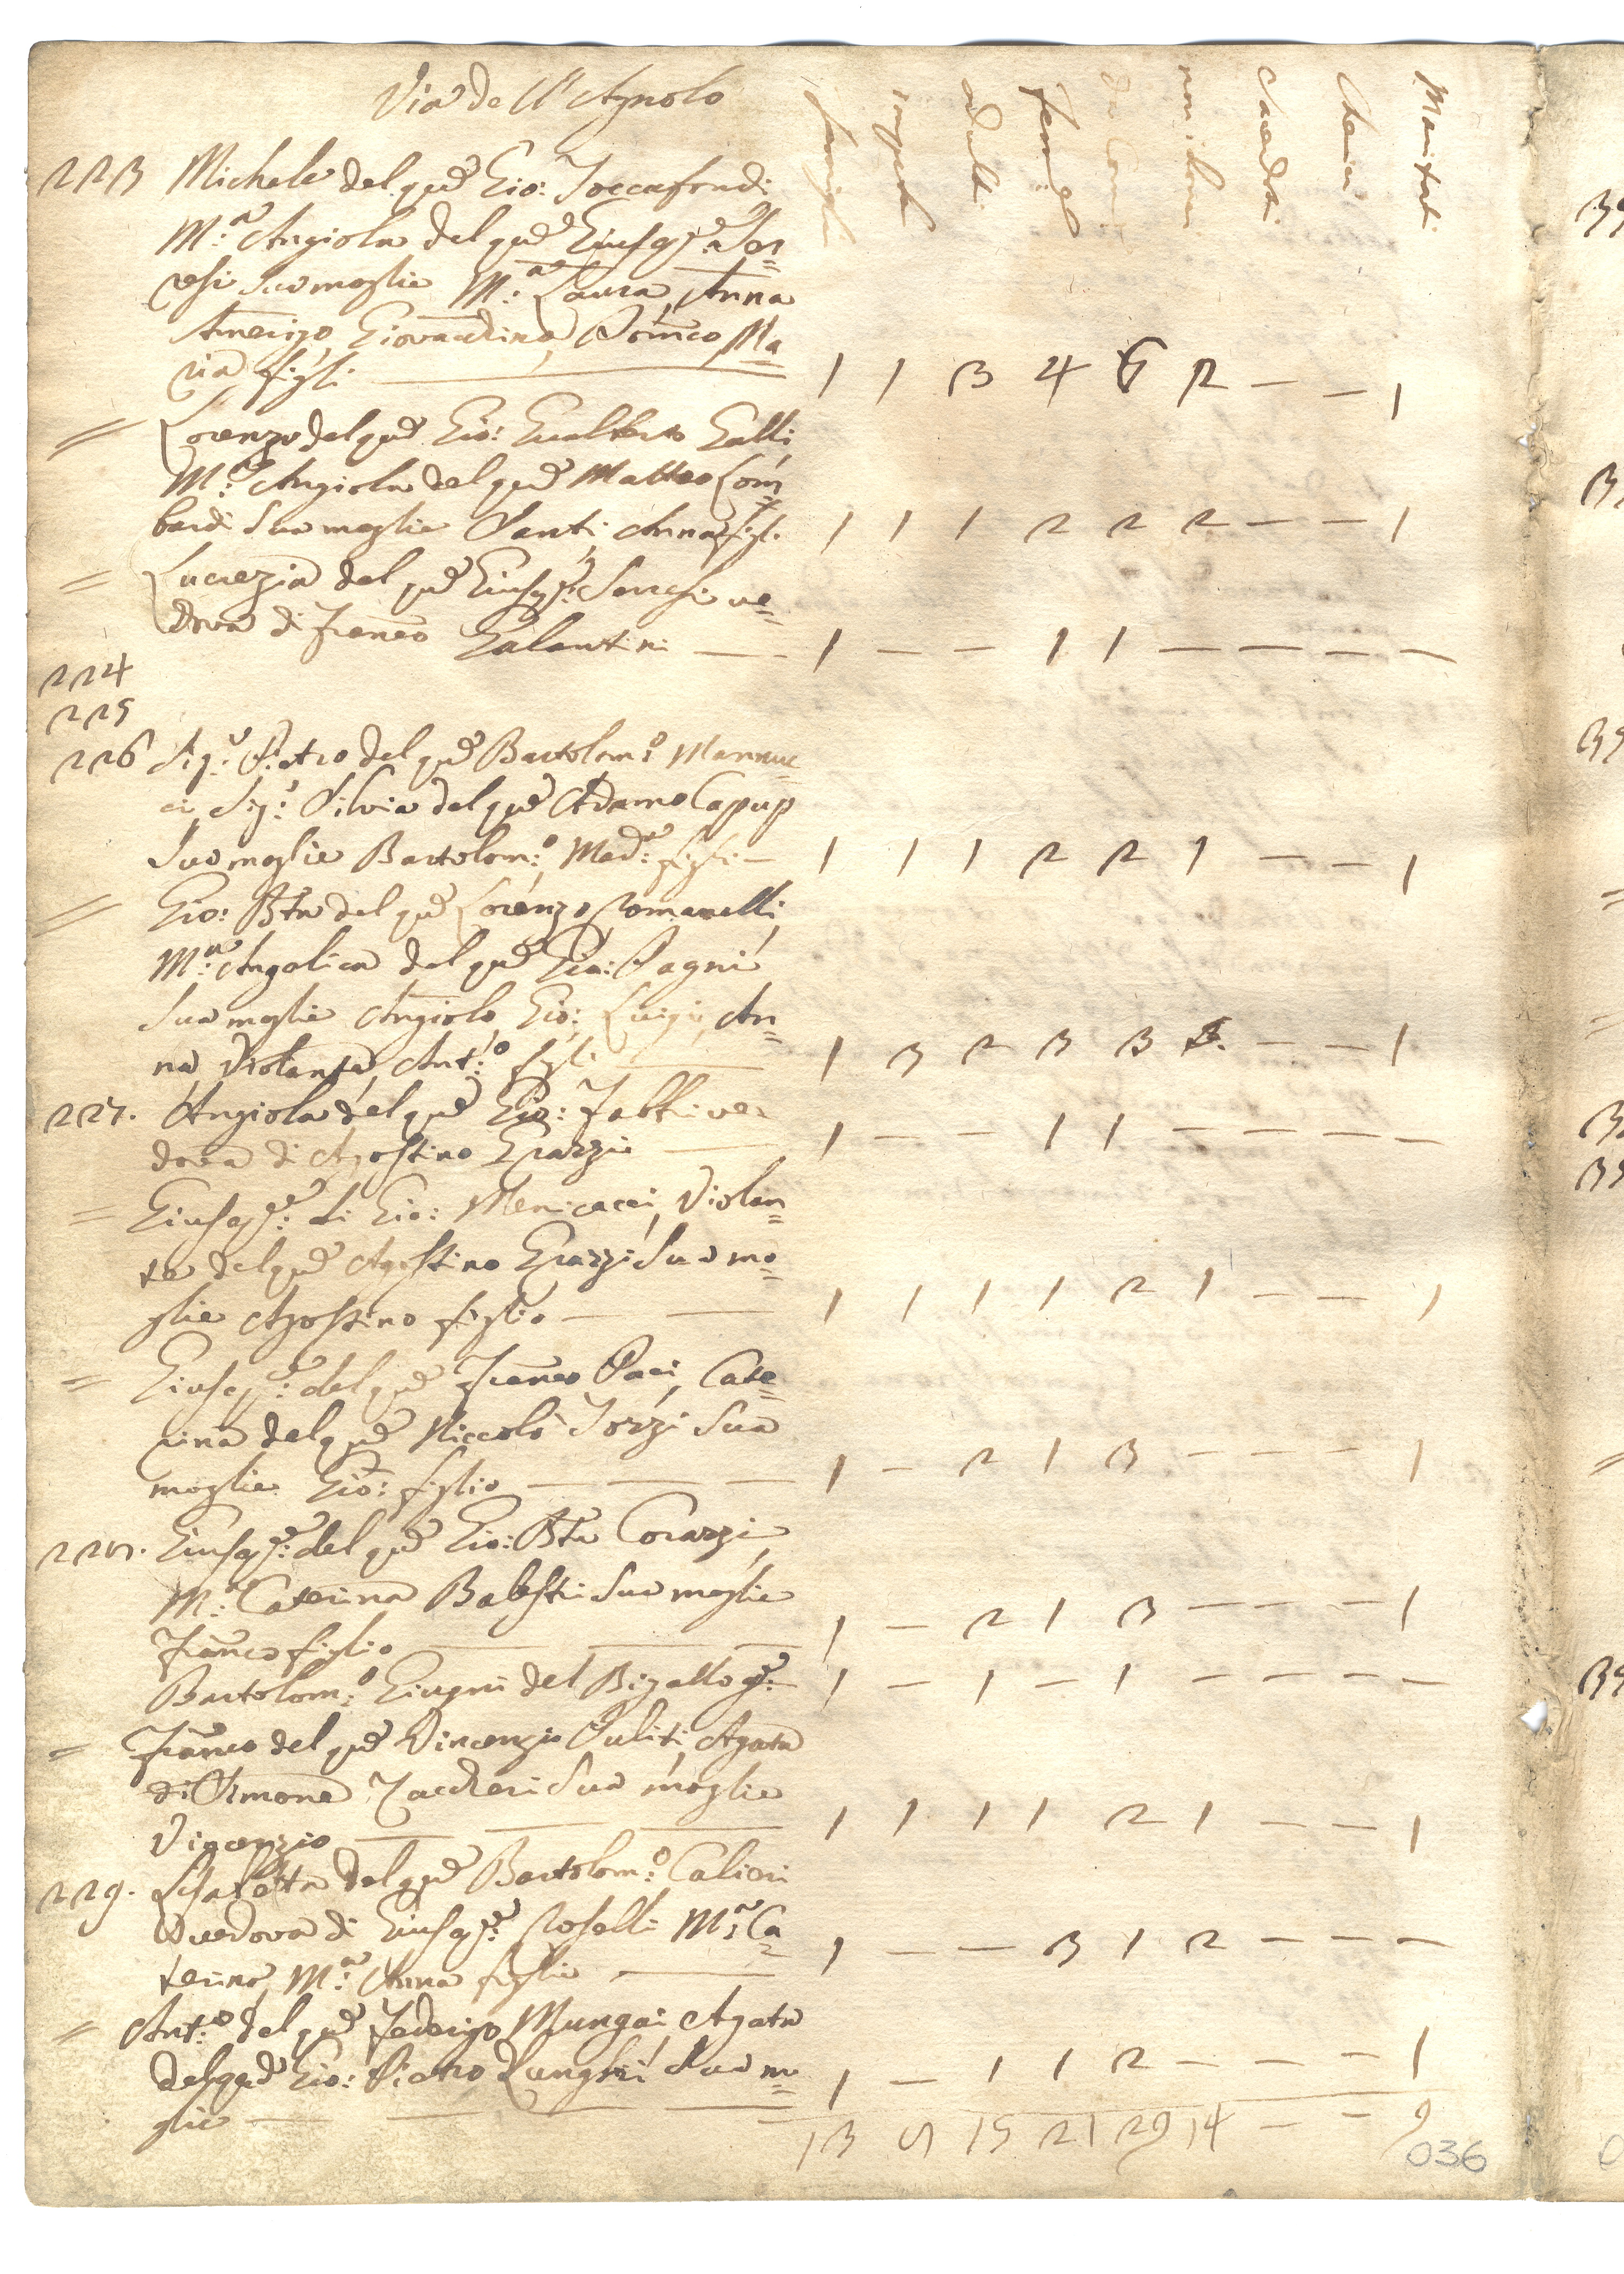 Via dell'Agnolo
famiglie impub. adulti femine da Com. non da Com. Sacerdoti Cherici Maritati
223 Michele del qm Gio: Toccafondi
M:a Angiola del qm Giusep:e Sor=
resi sua moglie M:a Laura, Anna
Amerigo, Giovacchino, Domco Ma=
ria figli 1 1 3 4 5 2 — — 1
= Lorenzo del qm Gio: Gualberto Galli
M:a Angiola del qm Matteo Lom=
bardi sua moglie Santi, Anna figli 1 1 1 2 2 2 — — 1
= Lucrezia del qm Giusep:e Sorresi ve=
dova di Franco Galantini — 1 — — 1 1 — — — —
224
225
226 Sig:r Pietro del qm Bartolom:o Mannuc=
ci, Sig:a Silvia del qm Adamo
sua moglie Bartolom:o Mad:a figli — 1 1 1 2 2 1 — — 1
= Gio: Bta del qm Lorenzo Romanelli,
M:a Angelica del qm Gio: Pagni
sua moglie Angiolo, Gio: Luigi, An=
na, Violante, Ant:o figli 1 3 2 3 3 — — 1
227. Angiola del qm Gio: Fabbri ve=
dova di Agostino Grazzi 1 — — 1 1 — — — —
= Giusep:e di Gio: Menicacci, Violan=
te del qm Agostino Grazzi sua mo=
glie Agostino figlio — — 1 1 1 1 2 1 — — 1
= Giusep:e del qm Franco Paci, Cate=
rina del qm Niccolò Torzi sua
moglie Gio: figlio — — — 1 — 2 1 3 — — — 1
228. Giusep:e del qm Gio: Bta Corazzi,
M:a Caterina Balestri sua moglie
Franco figlio 1 — 2 1 3 — — — 1
Bartolom:o Giugni del Bigallo 1 — 1 — 1 — — — —
= Franco del qm Vincenzio Puliti, Agata
di Simone Zaccheri sua moglie
Vincenzio 1 1 1 1 2 1 — — 1
229. Lisabetta del qm Bartolom:o Calieri
vedova di Giusep:e Roselli M:a Ca=
terina, M:a Anna figlie 1 — — 3 1 2 — — —
= Ant:o del qm Federigo Mungai, Agata
del qm Gio: Pietro Lunghi sua mo=
glie 1 — 1 1 2 — — — 1
13 8 15 21 29 14 — — 9
036